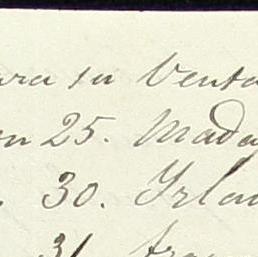 ura su Venta
en 25. Mada
30. Yrlan
31